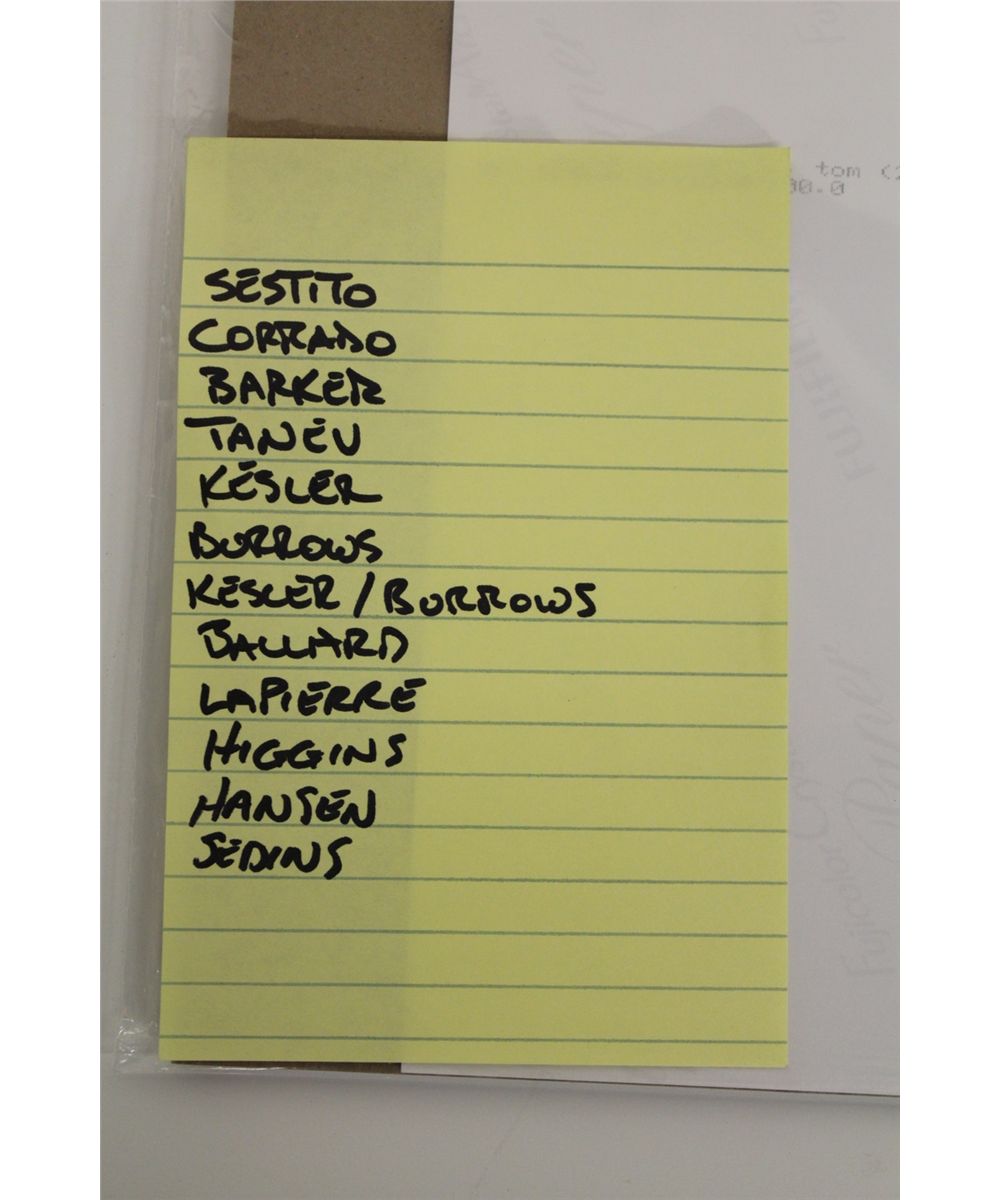 tom (
00.0
SESTITO
CORRADO
BARKER
TANEV
KESLER
BURROWS
KESLER/BURROWS
BALLARD
LAPIERRE
HIGGINS
HANSEN
SEDINS